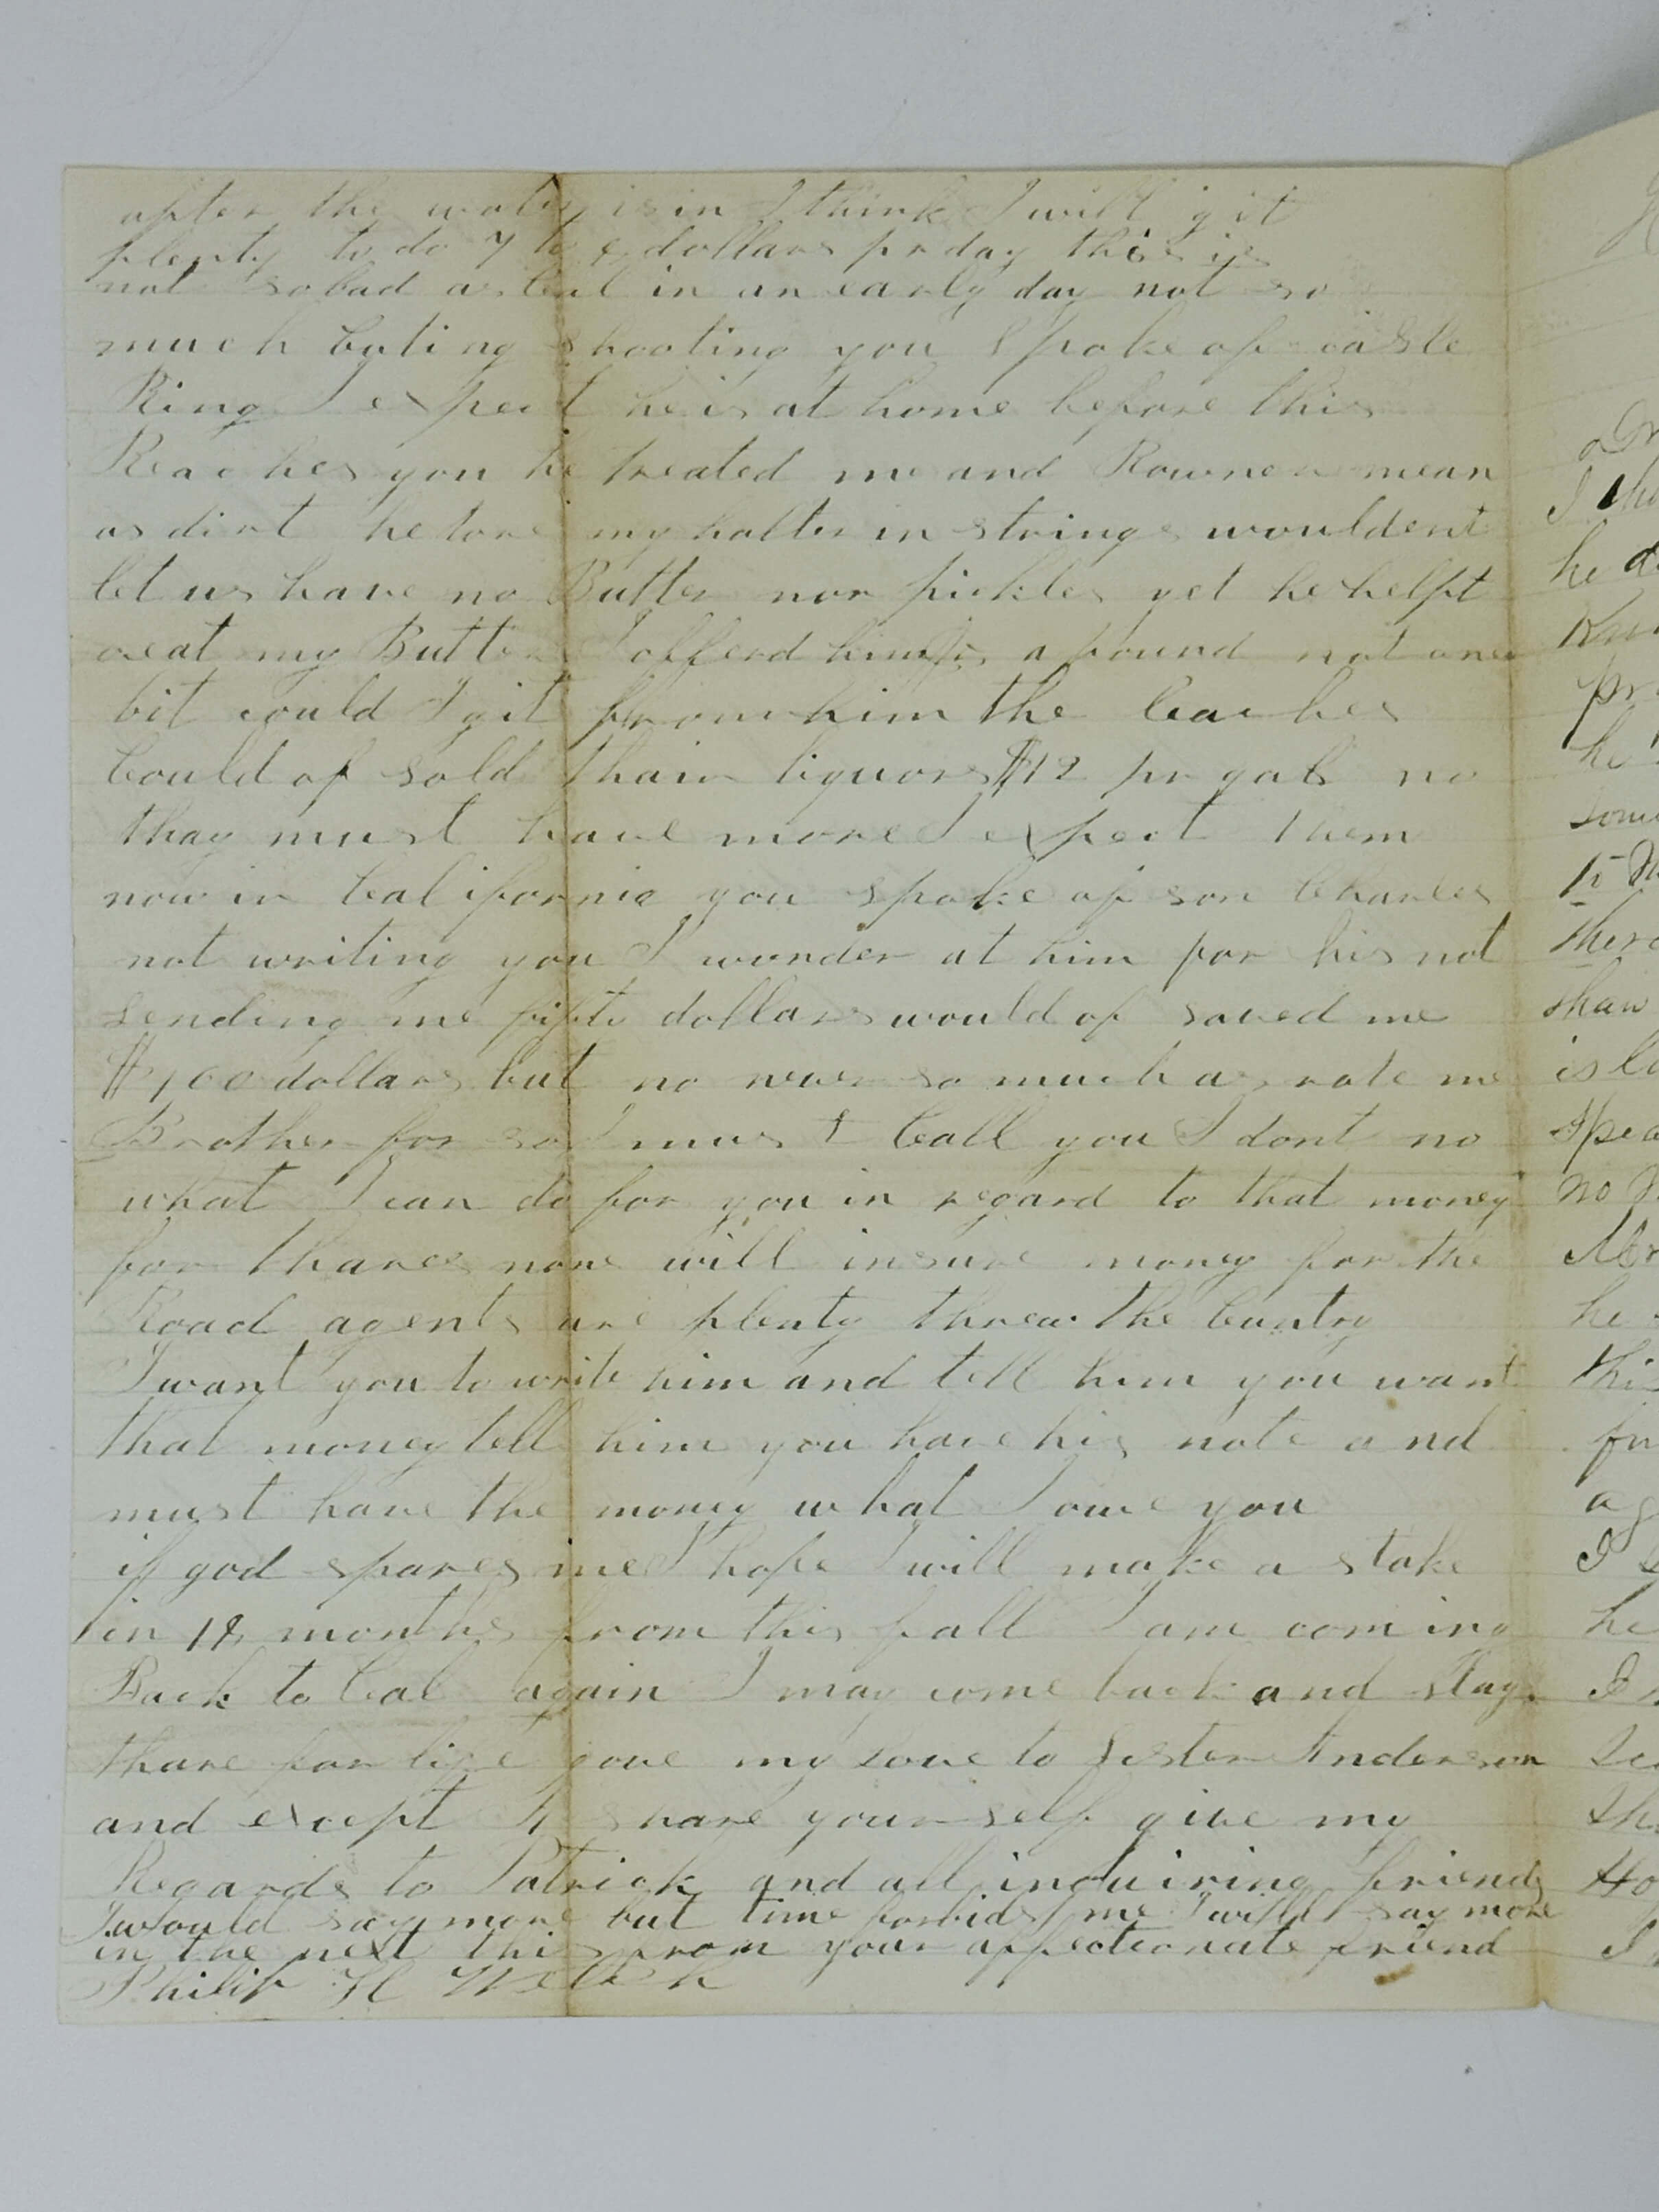 after the water is in I think I will git
plenty to do 7 to 8 dollars pr day this is
not so bad as Cal in an early day not so
much Cuting shooting you spoke of
King I expect he is at home before this
Reaches you he treated me and mean
as dirt he tore my halter in strings wouldent
let us have no Butter nor pickles yet he helpt
eat my Butter Iofferd him a pound not one
bit could I git from him the
Could of sold thair liquors $12 pr gals no
thay must have more I expect them
now in California you spoke of son Charles
not writing you I wonder at him for his not
sending me fifte dollars would of saved me
$100 dollars but no never so much as rote me
Brother for so I must Call you I dont no
what I can do for you in regard to that money
for thares none will insure money for the
Road agents are plenty threw the Cuntry
I want you to write him and tell him you want
that money tell him you have his note and
must have the money what I owe you
if god spares me I hope I will make a stake
in 18 months from this fall I am coming
Back to Cal again I may come back and stay
thare for life give my love to sister Anderson
and except share yourself give my
Regards to Patrick and all inquiring friends
I would say more but time forbids me I will say more
in the next this from your affectionate friend
Philip H Welch